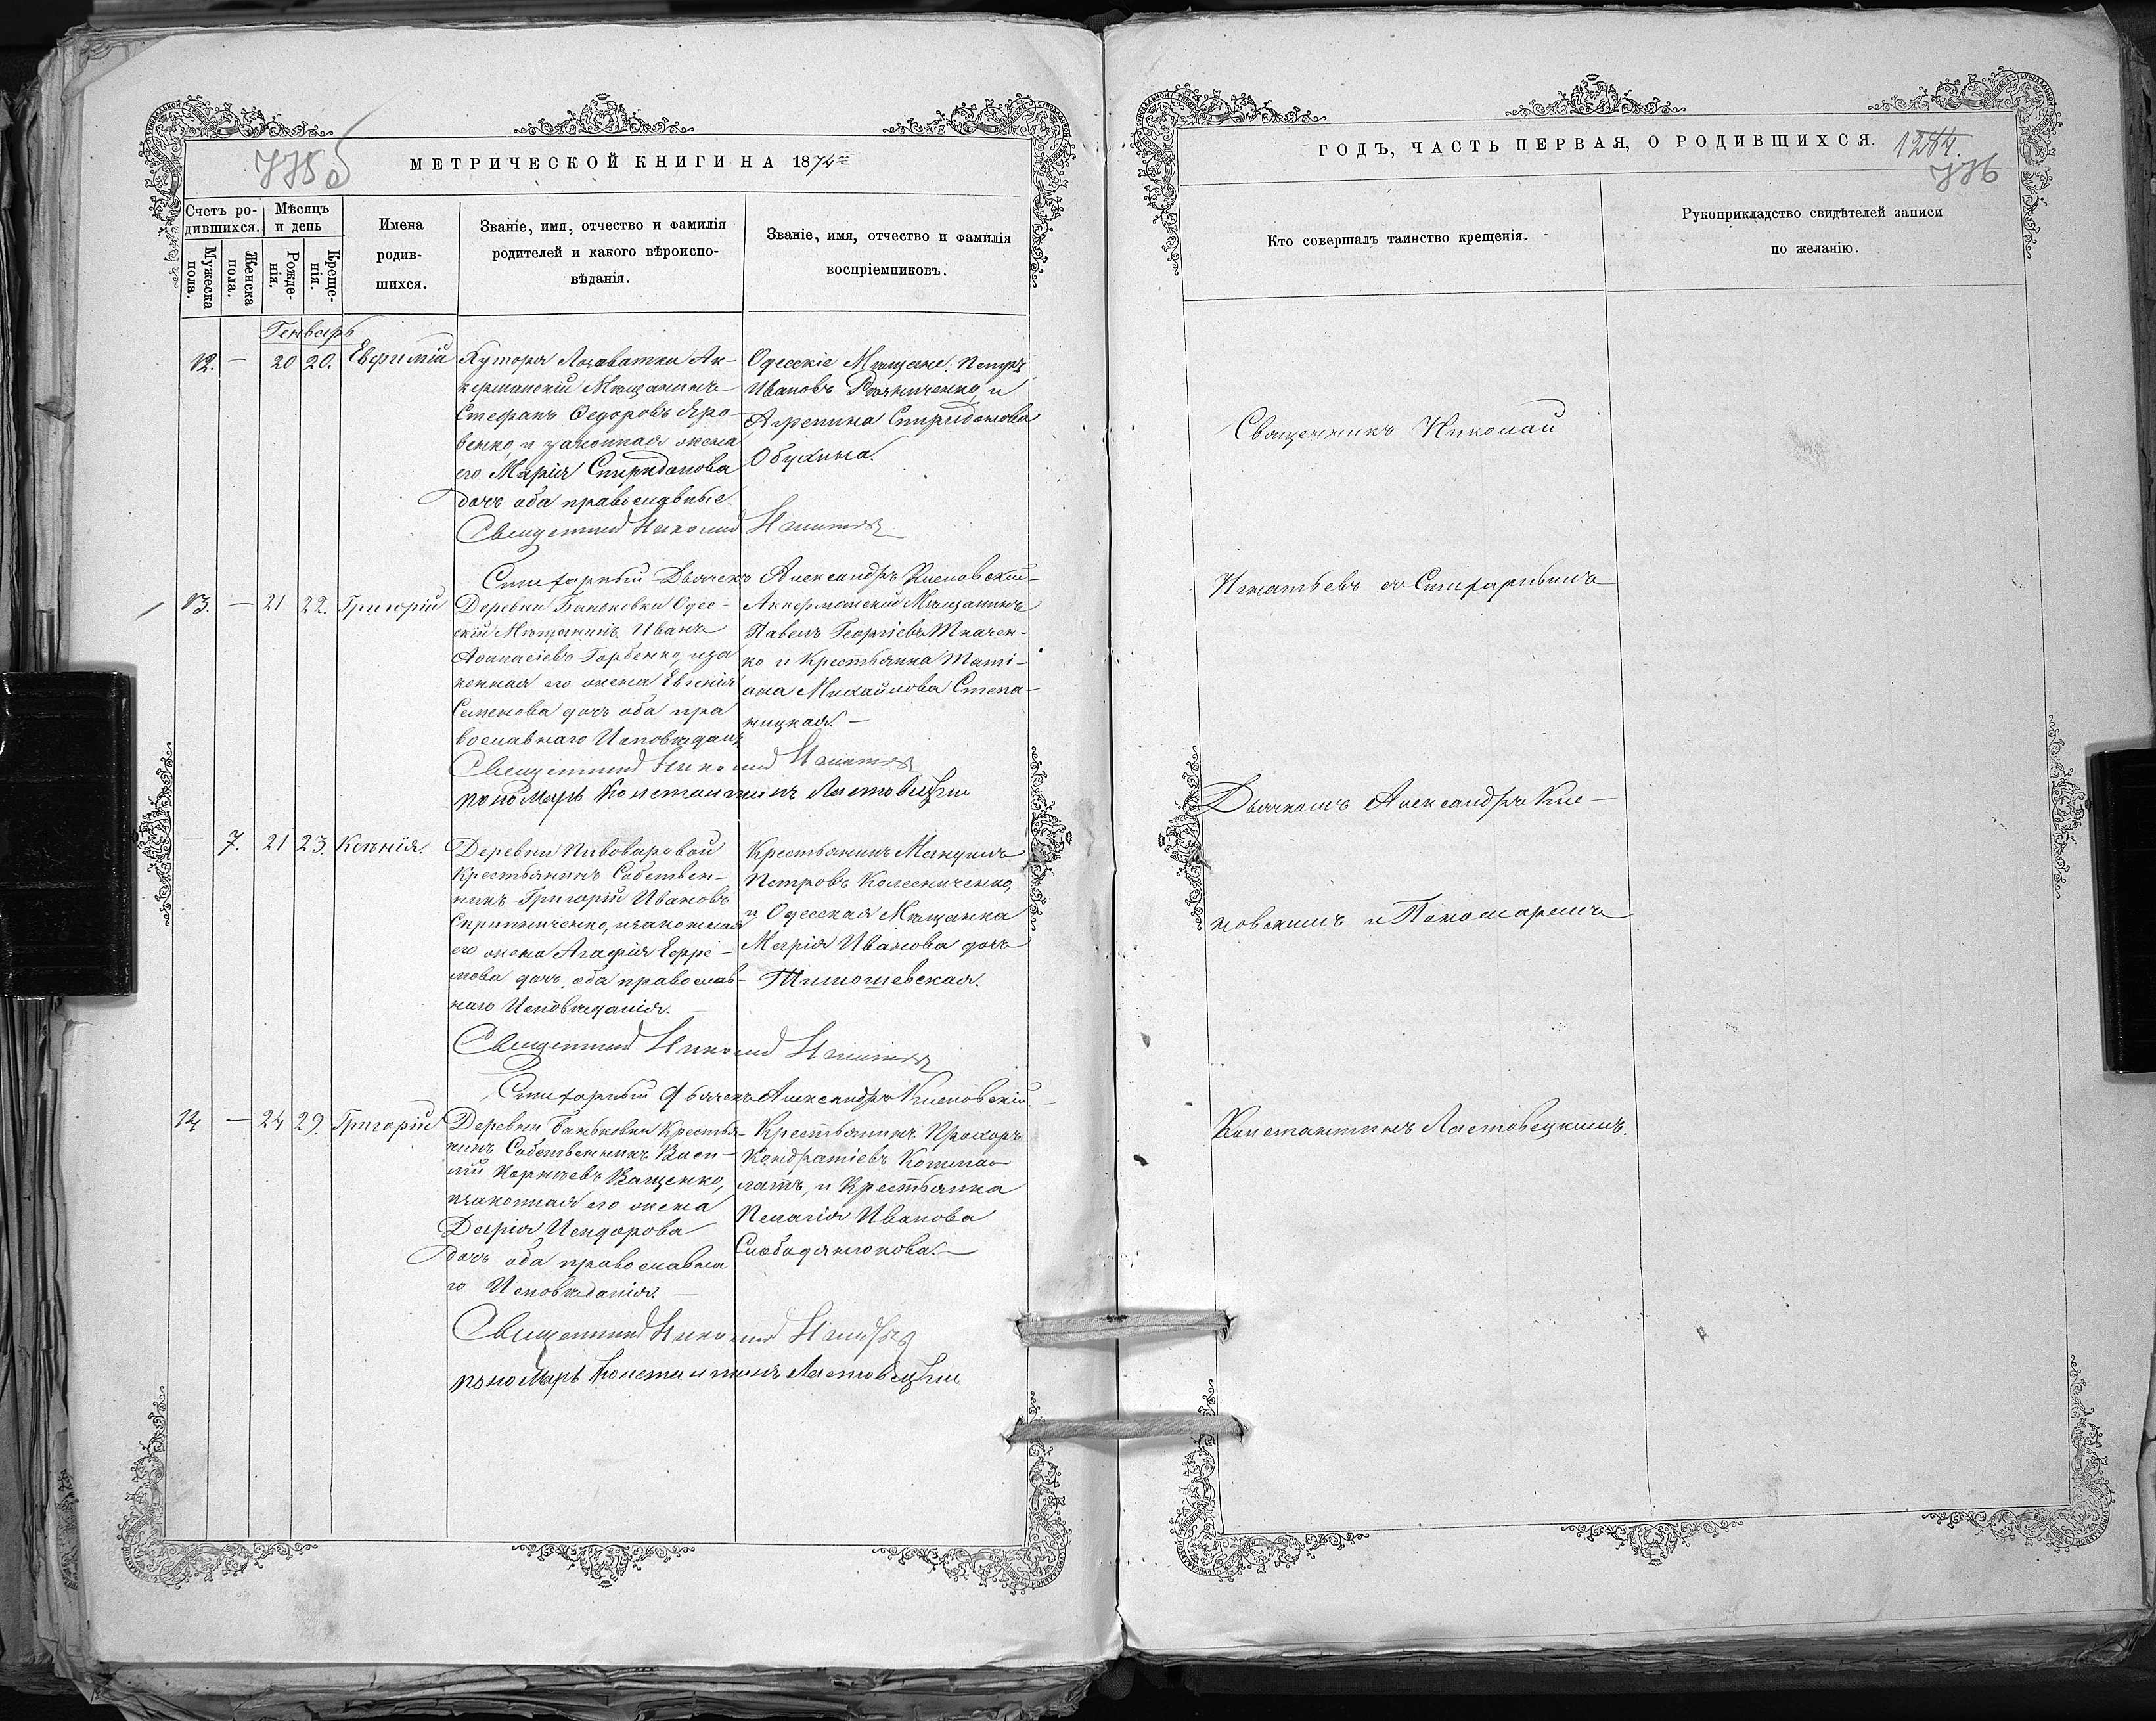 775 б
МЕТРИЧЕСКОЙ КНИГИ НА 1874
Счетъ ро-
дившихся.
Мѣсяцъ
и день
Мужеска
пола.
Женска
пола.
Рожде-
нія.
Креще-
нія.
Имена
родив-
шихся.
Званіе, имя, отчество и фамилія
родителей и какого вѣроиспо-
вѣданія.
Званіе, имя, отчество и фамилія
воспріемниковъ.
Генварь
12. — 20 20. Евфимій
Хутора Лозоватки Ак-
керманскій Мѣщанинъ
Стефанъ Ѳедоровъ Яро-
венко, и законная жена
его Марія Спиридонова
дочь оба православные
Одесскіе Мѣщане: Петръ
Ивановъ и
Агрепина Спиридонова
Обухина.
Священникъ Николай Игнатьев
Стихарный Дьячекъ Александръ Киеновскій
13. — 21 22. Григорій
Деревни Баньковки Одес-
скій Мѣщанинъ Иванъ
Аѳанасіевъ Горбенко, и за
конная его жена Евгенія
Семенова дочь оба пра
вославнаго Исповѣдан.
Аккерманскій Мѣщанинъ
Павелъ Георгіевъ Ткачен-
ко и Крестьянка Таті-
ана Михайлова Степа-
ницкая. —
Священникъ Николай Игнатьев
пономарь Константинъ Ластовецкий
— 7. 21 23. Ксенія.
Деревни Пивоваровой
Крестьянинъ Собствен-
никъ Григорій Ивановъ
Скрипниченко, и законная
его жена Агафія Ефре-
мова дочь, оба православ-
наго Исповѣданія.
Крестьянинъ
Петровъ Колесниченко,
и Одесская Мѣщанка
Марія Иванова дочь
Тимошевская.
Священникъ Николай Игнатьев
Стихарный Дьячекъ Александръ Киеновскій.
14 — 24 29. Григорій
Деревни Баньковки Крестья-
нинъ Собственникъ Васи-
лій Корнѣевъ Ващенко,
и законная его жена
Дарія Исидорова
дочь оба православна
го Исповѣданія. —
Крестьянинъ Прохоръ
Кондратіевъ
латъ, и Крестьянка
Пелагія Иванова
Слободянюкова. —
Священникъ Николай Игнатьев
пономарь Константинъ Ластовецкий
ГОДЪ, ЧАСТЬ ПЕРВАЯ, О РОДИВШИХСЯ.
1284.
776
Кто совершалъ таинство крещенія.
Рукоприкладство свидѣтелей записи
по желанію.
Священникъ Николай
Игнатьевъ со Стихарнымъ
Дьячкомъ Александромъ Кие-
новскимъ и Пономаремъ
Константиномъ Ластовецкимъ.